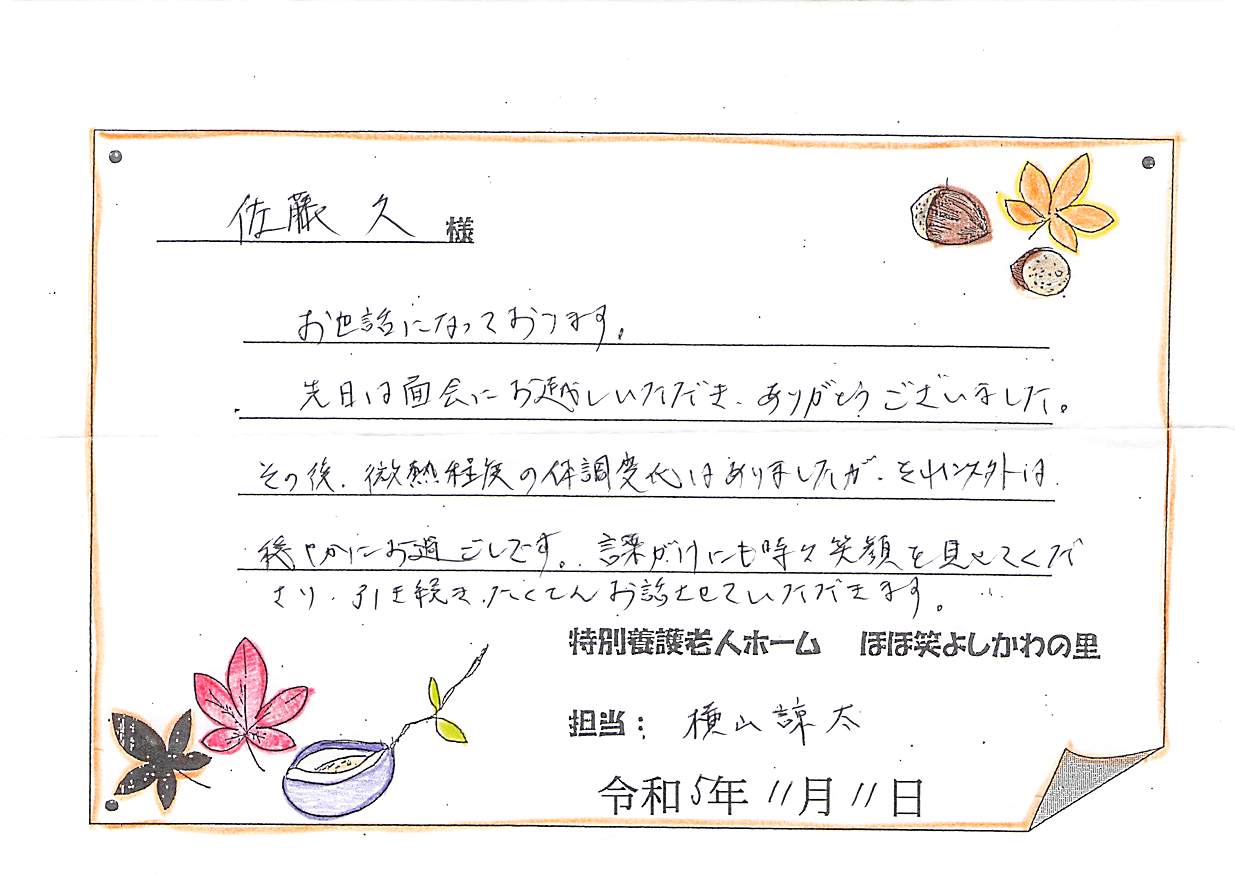 佐藤 久 様
お世話になっております。
先日は面会にお越しいただき、ありがとうございました。
その後、微熱程度の体調変化はありましたが、それ以外は
穏やかにお過ごしです。声掛けにも時々笑顔を見せてくだ
さり、引き続き、たくさんお話させていただきます。
特別養護老人ホーム ほほ笑よしかわの里
担当： 横山 諒太
令和5年11月11日